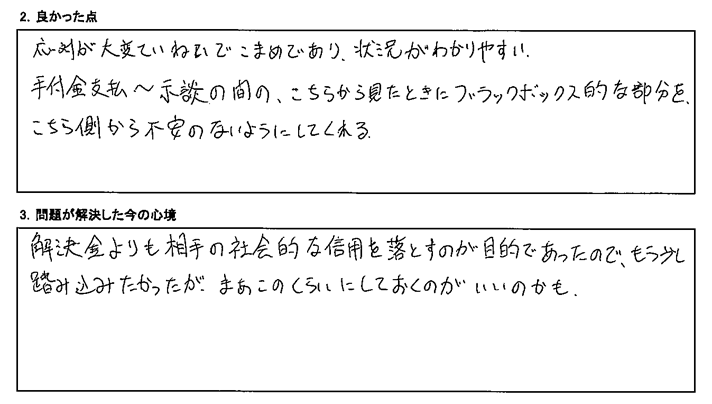 2. 良かった点
応対が大変ていねいでこまめであり、状況がわかりやすい.
手付金支払～示談の間の、こちらから見たときにブラックボックス的な部分を、
こちら側から不安のないようにしてくれる.
3. 問題が解決した今の心境
解決金よりも相手の社会的な信用を落とすのが目的であったので、もう少し
踏み込みたかったが. まあこのくらいにしておくのがいいのかも.